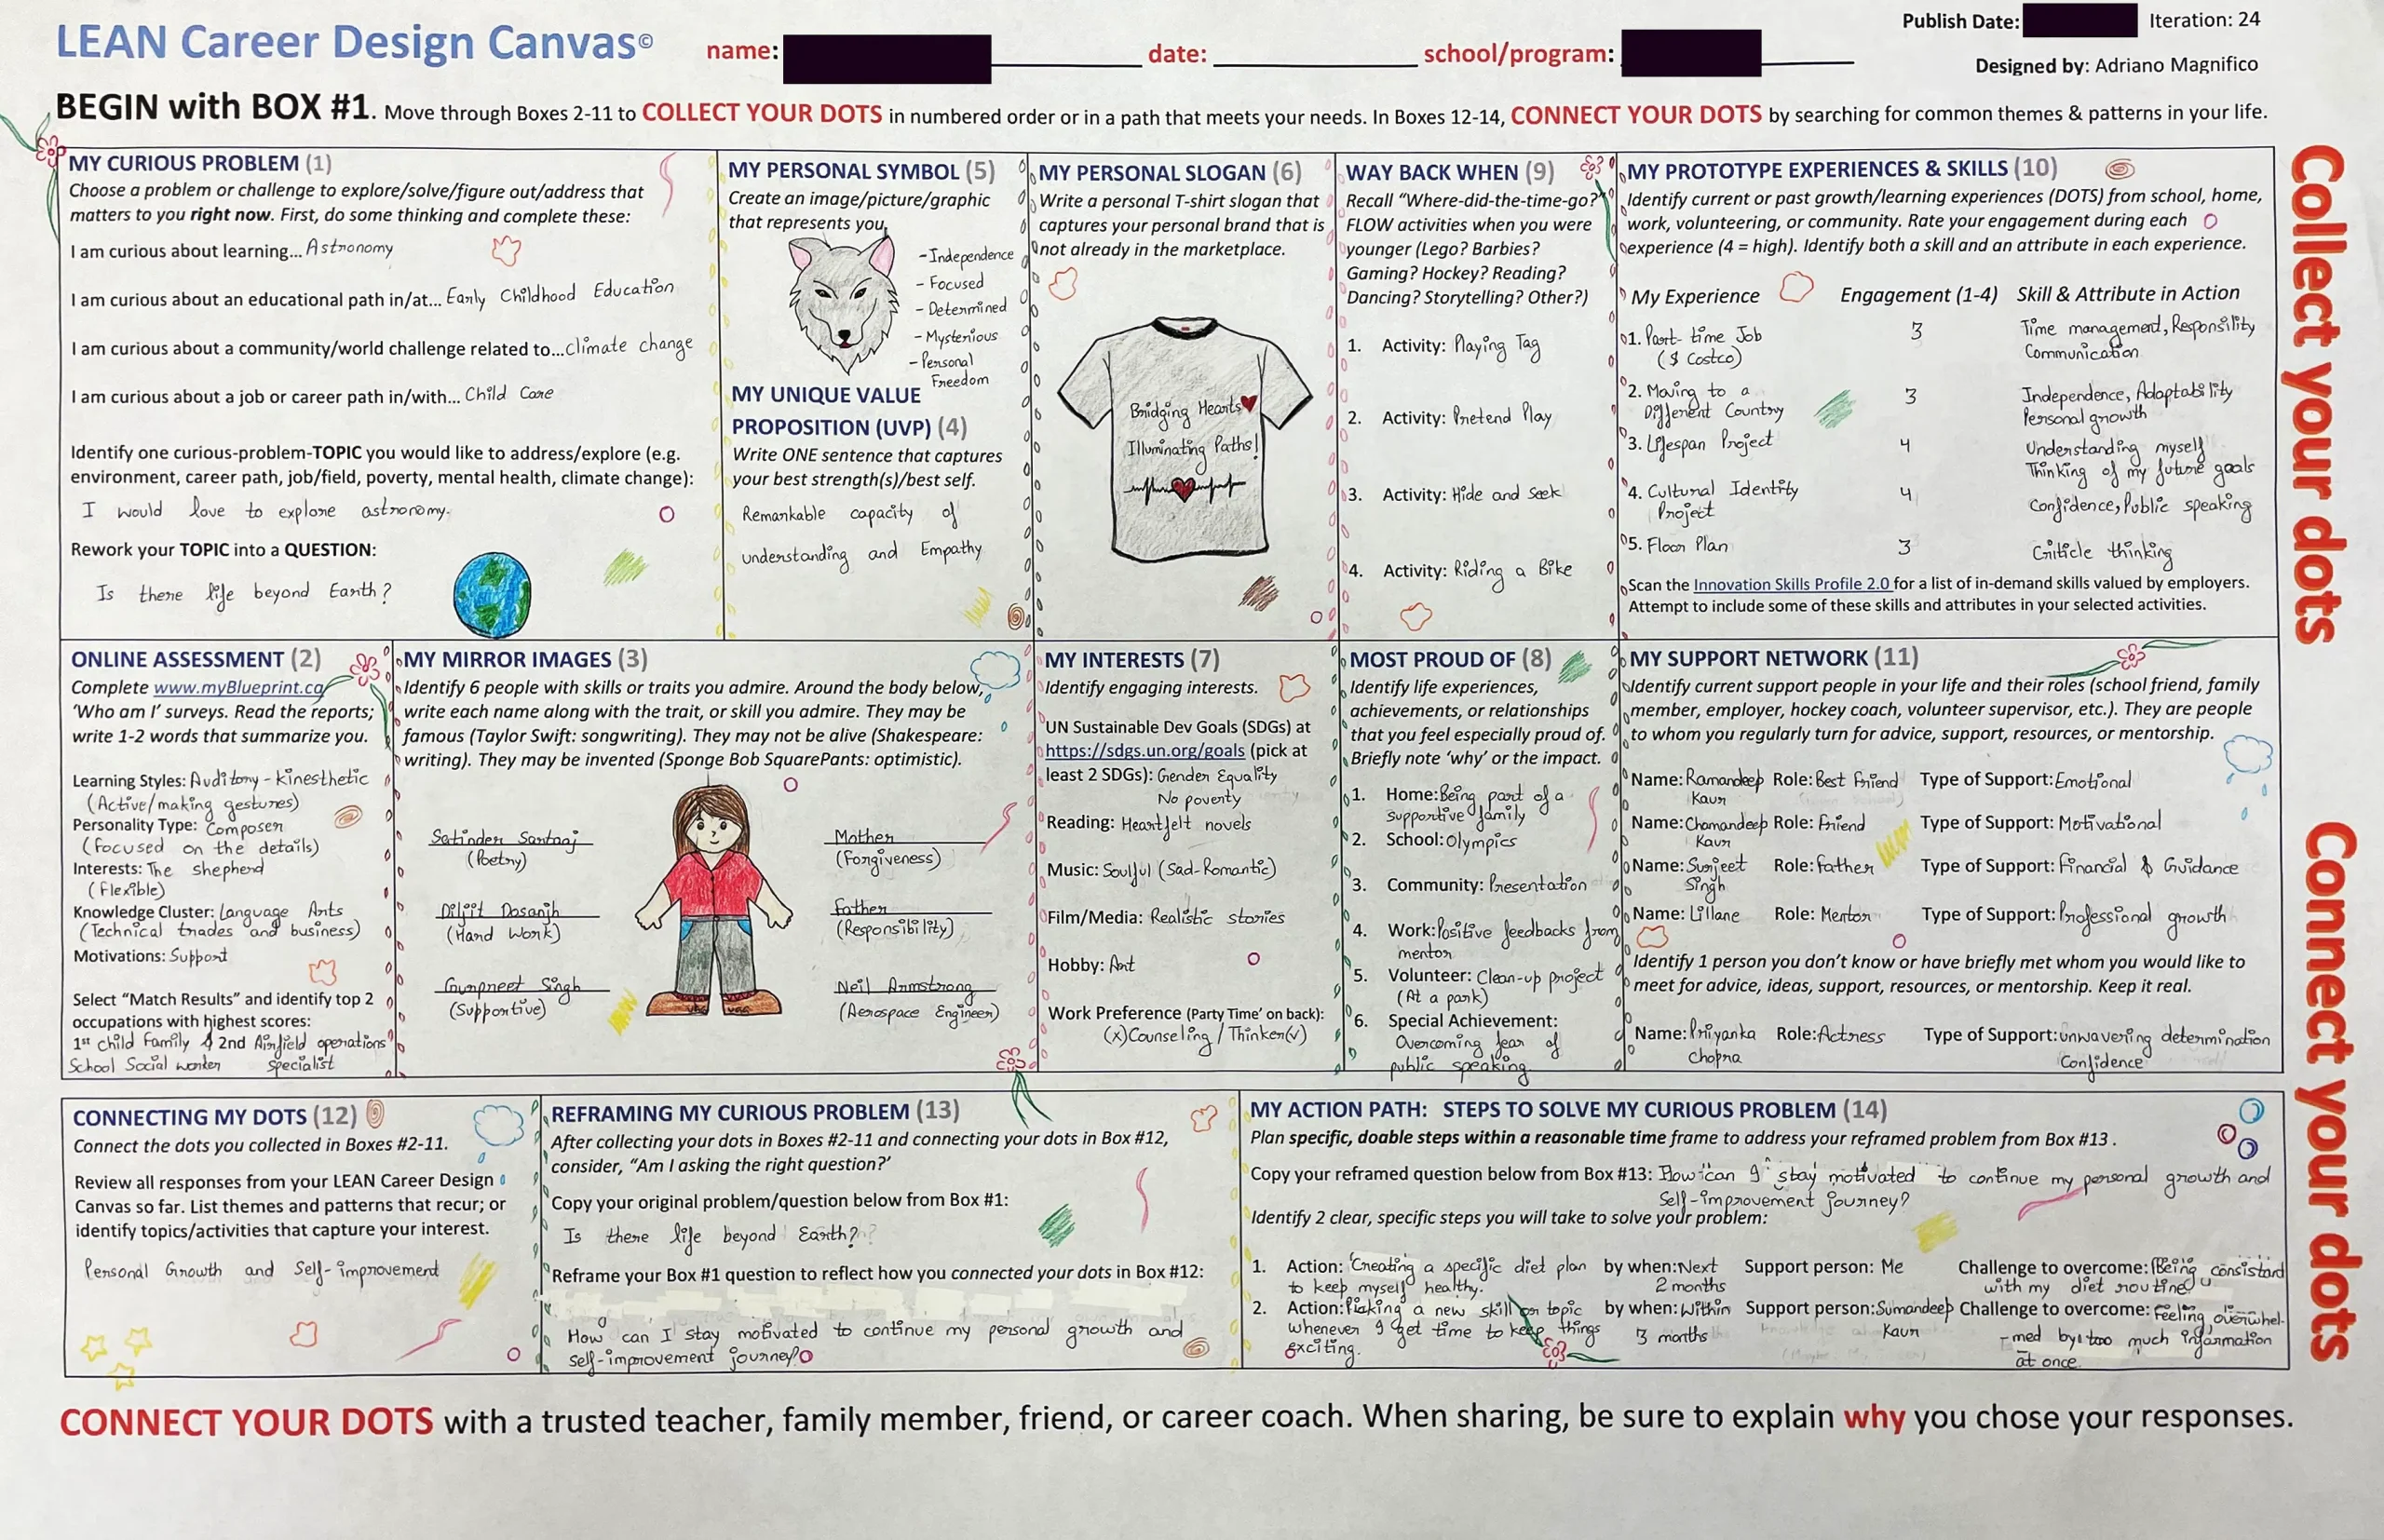 LEAN Career Design Canvas©
name:
date:
school/program:
Publish Date:
Iteration: 24
Designed by: Adriano Magnifico
BEGIN with BOX #1. Move through Boxes 2-11 to COLLECT YOUR DOTS in numbered order or in a path that meets your needs. In Boxes 12-14, CONNECT YOUR DOTS by searching for common themes & patterns in your life.
MY CURIOUS PROBLEM (1)
Choose a problem or challenge to explore/solve/figure out/address that
matters to you right now. First, do some thinking and complete these:
I am curious about learning... Astronomy
I am curious about an educational path in/at... Early Childhood Education
I am curious about a community/world challenge related to...climate change
I am curious about a job or career path in/with... Child Care
Identify one curious-problem-TOPIC you would like to address/explore (e.g.
environment, career path, job/field, poverty, mental health, climate change):
I would love to explore astronomy.
Rework your TOPIC into a QUESTION:
Is there life beyond Earth?
MY PERSONAL SYMBOL (5)
Create an image/picture/graphic
that represents you.
- Independence
- Focused
- Determined
- Mysterious
- Personal
Freedom
MY UNIQUE VALUE
PROPOSITION (UVP) (4)
Write ONE sentence that captures
your best strength(s)/best self.
Remarkable capacity of
understanding and Empathy
MY PERSONAL SLOGAN (6)
Write a personal T-shirt slogan that
captures your personal brand that is
not already in the marketplace.
Bridging Hearts
Illuminating Paths!
WAY BACK WHEN (9)
Recall "Where-did-the-time-go?"
FLOW activities when you were
younger (Lego? Barbies?
Gaming? Hockey? Reading?
Dancing? Storytelling? Other?)
1. Activity: Playing Tag
2. Activity: Pretend Play
3. Activity: Hide and Seek
4. Activity: Riding a Bike
MY PROTOTYPE EXPERIENCES & SKILLS (10)
Identify current or past growth/learning experiences (DOTS) from school, home,
work, volunteering, or community. Rate your engagement during each
experience (4 = high). Identify both a skill and an attribute in each experience.
My Experience Engagement (1-4) Skill & Attribute in Action
1. Part-time Job 3 Time management, Responsility
($ Costco) Communication
2. Moving to a 3 Independence, Adaptability
Different Country Personal growth
3. Lifespan Project 4 Understanding myself
Thinking of my future goals
4. Cultural Identity 4 Confidence, Public speaking
Project
5. Floor Plan 3 Criticle thinking
Scan the Innovation Skills Profile 2.0 for a list of in-demand skills valued by employers.
Attempt to include some of these skills and attributes in your selected activities.
Collect your dots
ONLINE ASSESSMENT (2)
Complete www.myBlueprint.ca
'Who am I' surveys. Read the reports;
write 1-2 words that summarize you.
Learning Styles: Auditory - Kinesthetic
(Active/making gestures)
Personality Type: Composer
(focused on the details)
Interests: The shepherd
(Flexible)
Knowledge Cluster: Language Arts
(Technical trades and business)
Motivations: Support
Select "Match Results" and identify top 2
occupations with highest scores:
1st Child Family & 2nd Airfield operations
School Social worker specialist
MY MIRROR IMAGES (3)
Identify 6 people with skills or traits you admire. Around the body below,
write each name along with the trait, or skill you admire. They may be
famous (Taylor Swift: songwriting). They may not be alive (Shakespeare:
writing). They may be invented (Sponge Bob SquarePants: optimistic).
Satinder Sartaaj
(Poetry)
Diljit Dosanjh
(Hard Work)
Gurpreet Singh
(Supportive)
Mother
(Forgiveness)
Father
(Responsibility)
Neil Armstrong
(Aerospace Engineer)
MY INTERESTS (7)
Identify engaging interests.
UN Sustainable Dev Goals (SDGs) at
https://sdgs.un.org/goals (pick at
least 2 SDGs): Gender Equality
No poverty
Reading: Heartfelt novels
Music: Soulful (Sad-Romantic)
Film/Media: Realistic stories
Hobby: Art
Work Preference (Party Time' on back):
(x)Counseling / Thinker(√)
MOST PROUD OF (8)
Identify life experiences,
achievements, or relationships
that you feel especially proud of.
Briefly note 'why' or the impact.
1. Home: Being part of a
supportive family
2. School: Olympics
3. Community: Presentation
4. Work: Positive feedbacks from
mentor
5. Volunteer: Clean-up project
(At a park)
6. Special Achievement:
Overcoming fear of
public speaking
MY SUPPORT NETWORK (11)
Identify current support people in your life and their roles (school friend, family
member, employer, hockey coach, volunteer supervisor, etc.). They are people
to whom you regularly turn for advice, support, resources, or mentorship.
Name: Ramandeep Role: Best Friend Type of Support: Emotional
Kaur
Name: Chamandeep Role: Friend Type of Support: Motivational
Kaur
Name: Surjeet Role: Father Type of Support: Financial & Guidance
Singh
Name: Lillane Role: Mentor Type of Support: Professional growth
Identify 1 person you don't know or have briefly met whom you would like to
meet for advice, ideas, support, resources, or mentorship. Keep it real.
Name: Priyanka Role: Actress Type of Support: unwavering determination
chopra Confidence
CONNECTING MY DOTS (12)
Connect the dots you collected in Boxes #2-11.
Review all responses from your LEAN Career Design
Canvas so far. List themes and patterns that recur; or
identify topics/activities that capture your interest.
Personal Growth and Self-improvement
REFRAMING MY CURIOUS PROBLEM (13)
After collecting your dots in Boxes #2-11 and connecting your dots in Box #12,
consider, "Am I asking the right question?'
Copy your original problem/question below from Box #1:
Is there life beyond Earth?
Reframe your Box #1 question to reflect how you connected your dots in Box #12:
How can I stay motivated to continue my personal growth and
self-improvement journey?
MY ACTION PATH: STEPS TO SOLVE MY CURIOUS PROBLEM (14)
Plan specific, doable steps within a reasonable time frame to address your reframed problem from Box #13 .
Copy your reframed question below from Box #13: How can I stay motivated to continue my personal growth and
Self-improvement journey?
Identify 2 clear, specific steps you will take to solve your problem:
1. Action: Creating a specific diet plan by when: Next Support person: Me Challenge to overcome: Being consistant
to keep myself healthy. 2 months with my diet routine
2. Action: Picking a new skill or topic by when: Within Support person: Sumandeep Challenge to overcome: Feeling overwhel-
whenever I get time to keep things 3 months Kaur -med by too much information
exciting. at once
Connect your dots
CONNECT YOUR DOTS with a trusted teacher, family member, friend, or career coach. When sharing, be sure to explain why you chose your responses.